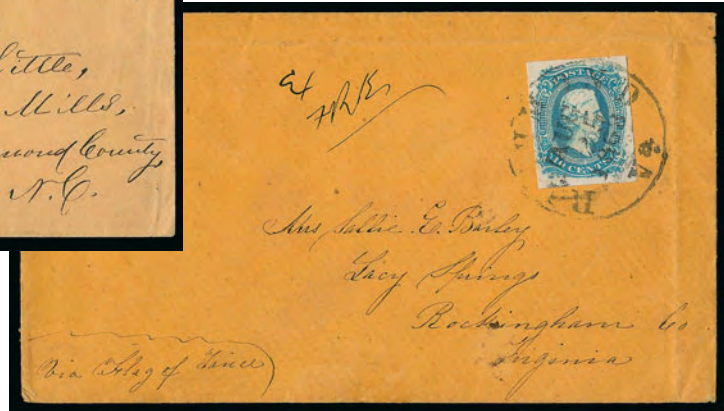 Little,
Mills,
mond County,
N.C.
Ex
POSTAGE
TEN CENTS
Va
Mrs Sallie E. Barley
Lacy Springs
Rockingham Co
Virginia
Via Flag of Truce